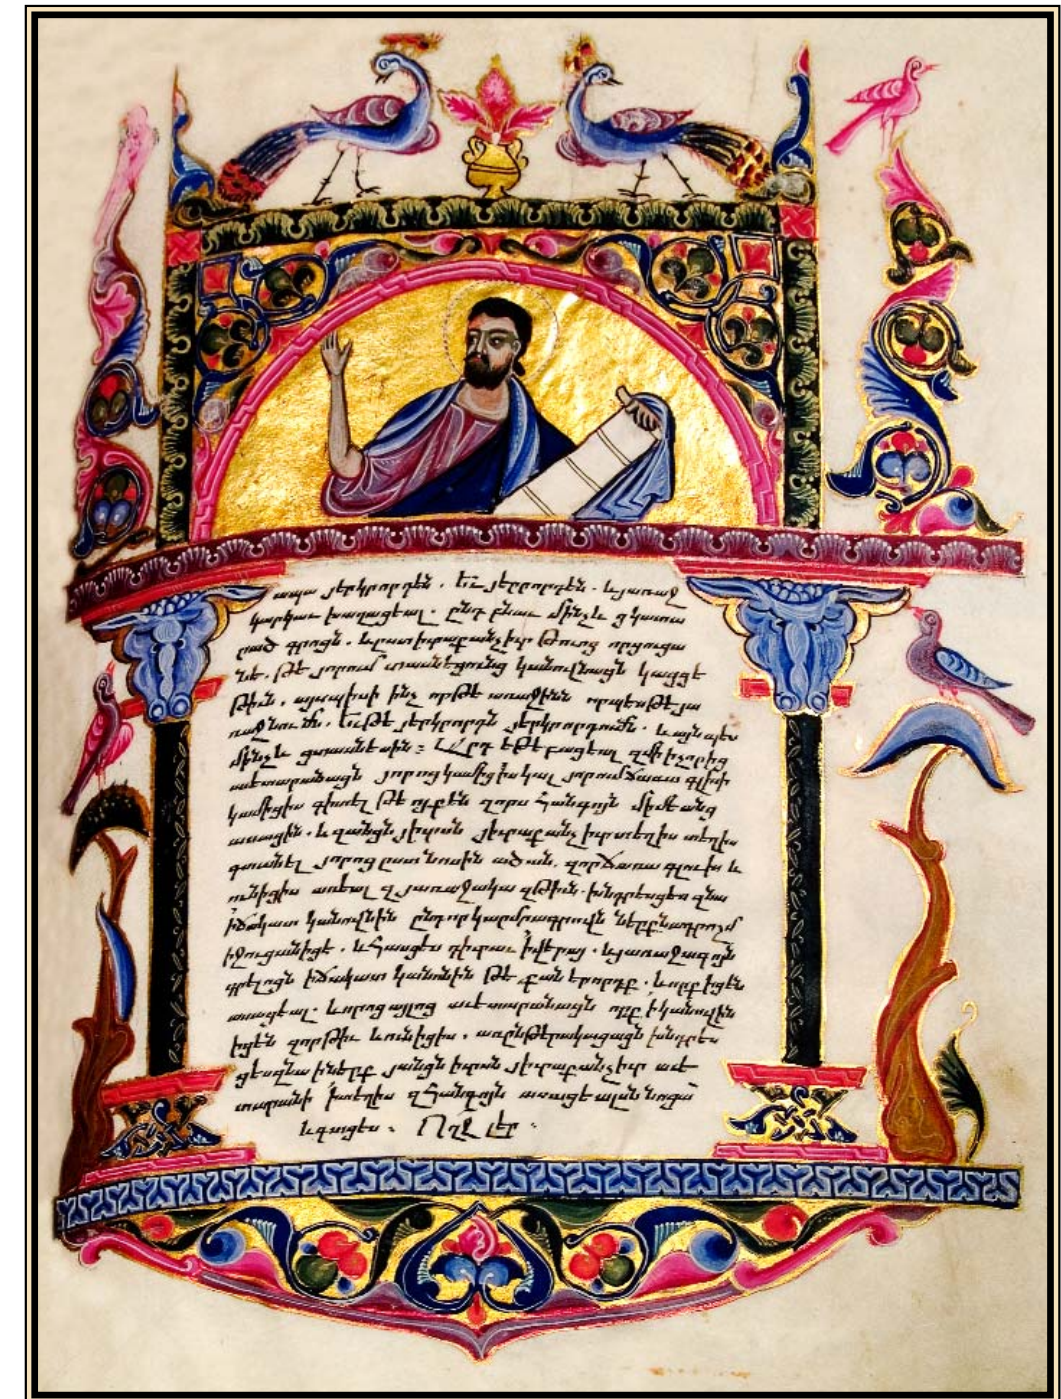 ապա յերկրորդէն . եւ յերրորդէն . և յառաջ
կարկաւ խաղացեալ . ընդ բնաւ մինչև ցկատա
րած գրոցն . և
նէ . թէ յորում տասնեցունց կանովնացն կայցէ
թիւն . այսպիսի ինչ որթէ առաջինն
ռաջնումն . եւ թէ յերկրորդն յերկրորդումն . և այսպէս
մինչև ցտասնեսին : Արդ եթէ բացեալ զմի իչորից
աւետարանացն յորոց կամիցիս կալ յորում ճառս գլխի
կամիցիս գիտել թէ ոյք են զորս հանգոյն միմեանց
ասացին . և զանցն յիւրան յիւրաքանչիւր տեղիս տեղիս
գտանել յորոց ըստ նոսին ածան . զորճառս գլուխ և
ունիցիս առեալ զյառաջակա զթիւն . խնդրեսցես զնա
իճակատ կանովնին ընդոր կարմրագրովն ներքնագրոշմ
իցուցանիցէ . և հասցես դիւրաւ իվերայ . և յառաջագոյն
գրելոցն իճակատ կանոնին թէ քան երորդք . և ոյք իցեն
ասացեալ . և որոց այլոց աւետարանացն
իցեն զորթիւ և ունիցիս , առընթերակացացն խնդրես
ցես զնա իներք յանցն իւրան յիւրաքանչիւր աւե
տարանի իտեղիս զհանգոյն ասացեալսն նոցա
և գտցես . Ողջ լեր .